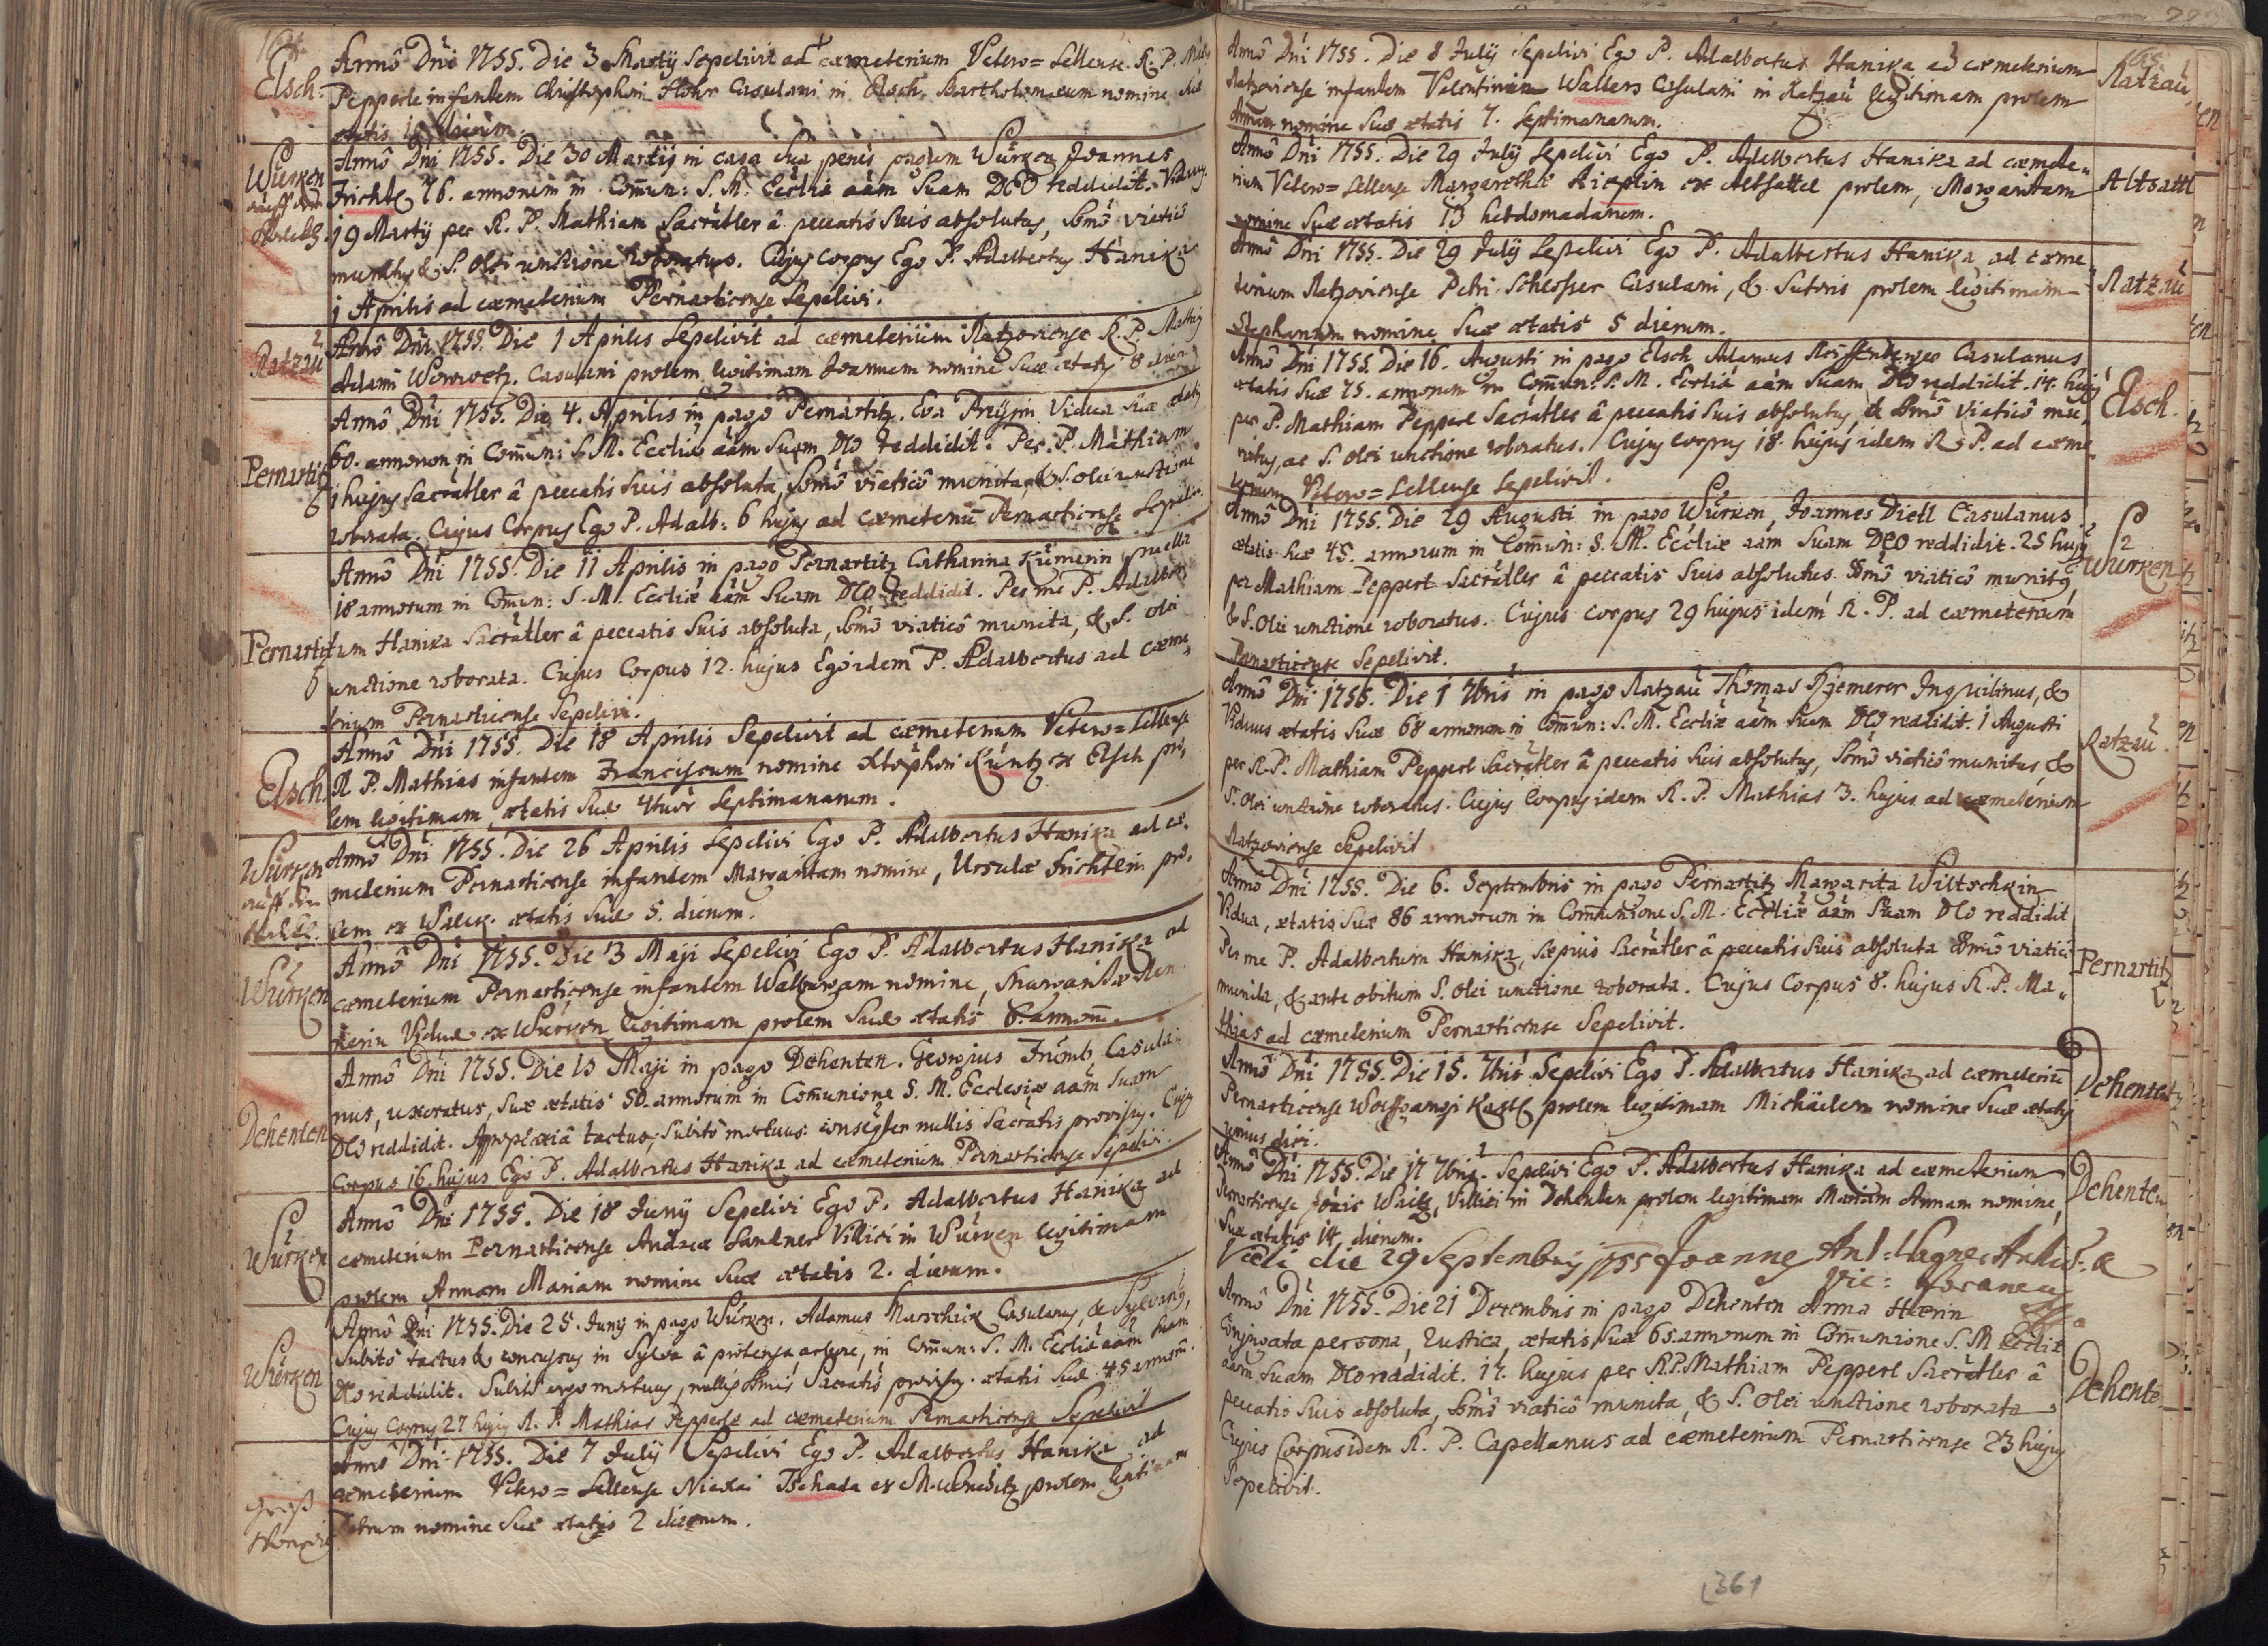 Elsch.
Anno Dni 1755. Die 3 Martij Sepelivit ad cæmeterium Vetero=Sellense R. P.
Pepperle infantem Christophori Casulani in Elsch, Bartholomæum nomine suæ
ætatis dierum.
Würken
Anno Dni 1755. Die 30 Martij in casa sua penes pagum Würken Joannes
Frichtl 76. annorum in Comun: S. M. Eccliæ aam suam DEO reddidit. Viduus.
19 Martij per R. P. Mathiam Sacratler â peccatis suis absolutus, ssmo viatico
munitus & S. olei unctione roboratus. Cujus corpus Ego P. Adalbertus Hanika
1 Aprilis ad cæmeterium Pernarticense Sepelivi.
Ratzau
Anno Dni 1755. Die 1 Aprilis Sepelivit ad cæmeterium Ratzoviense R. P. Mathias
Adami Casulani prolem legitimam Joannem nomine suæ ætatis 8 dierum
Pernartitz
Anno Dni 1755. Die 4. Aprilis in pago Pernartitz. Eva Vidua suæ ætatis
60. annorum in Comun: S. M. Eccliæ aam suam DEO reddidit. Per. P. Mathiam
1 hujus Sacratler â peccatis suis absoluta, ssmô viaticô munita, & S. olei unctione
roborata. Cujus Corpus Ego P. Adalb: 6 hujus ad cæmeteriu Pernarticense Sepelivi
Pernartitz
Anno Dni 1755. Die 11 Aprilis in pago Pernartitz Catharina Kümerin puella
18 annorum in Comun: S. M. Eccliæ aam suam DEO reddidit. Per me P. Adalber
tum Hanika Sacratler â peccatis suis absoluta, ssmô viaticô munita, & S. olei
unctione roborata. Cujus Corpus 12. hujus Ego idem P. Adalbertus ad cæme„
terium Pernarticense Sepelivi.
Elsch.
Anno Dni 1755. Die 18 Aprilis Sepelivit ad cæmeterium Vetero=Sellense
R P. Mathias infantem Franciscum nomine Xtophori Küntz ex Elsch pro„
lem legitimam, ætatis suæ 4tuor septimanarum.
Würken
Anno Dni 1755. Die 26 Aprilis Sepelivi Ego P. Adalbertus Hanika ad cæ„
meterium Pernarticense infantem Margaritam nomine, Ursulæ Frichtlin pro„
lem ex ætatis suæ 5. dierum.
Würken
Anno Dni 1755. Die 3 Maji Sepelivi Ego P. Adalbertus Hanika ad
cæmeterium Pernarticense infantem Walburgam nomine, Margaritæ
Viduæ ex Würken legitimam prolem suæ ætatis 6. annoru.
Dehenten
Anno Dni 1755. Die 15 Maji in pago Dehenten. Georgius Casula„
nus, uxoratus, suæ ætatis 50. annorum in Comunione S. M. Ecclesiæ aam suam
DEO reddidit. Apoplexiâ tactus, subitô mortuus: nullis Sacratis provisus. Cujus
Corpus 16. hujus Ego P. Adalbertus Hanika ad cæmeterium Pernarticense Sepelivi.
Würken
Anno Dni 1755. Die 18 Junij Sepelivi Ego P. Adalbertus Hanika ad
cæmeterium Pernarticense Andreæ Sandner Villici in Würken legitimam
prolem Annam Mariam nomine suæ ætatis 2. dierum.
Würken
Anno Dni 1755. Die 25. Junij in pago Würken. Adamus Marschick Casulanus, & Sylvanus,
subitô tactus & concussus in Sylva â arbore, in Comun: S. M. Eccliæ aam suam
DEO reddidit. Subitô ergo mortuus, nullis Sacratis provisus. ætatis suæ 45 annoru.
Cujus Corpus 27 hujus R. P. Mathias Pepperle ad cæmeterium Pernarticense Sepelivit
Gross
Anno Dni 1755. Die 7 Julij Sepelivi Ego P. Adalbertus Hanika ad
cæmeterium Vetero=Sellense Nicolai Tschada ex prolem legitimam
Petrum nomine suæ ætatis 2 dierum.
Ratzau
Anno Dni 1755. Die 8 Julij Sepelivi Ego P. Adalbertus Hanika ad cæmeterium
Ratzoviense infantem Valentini Wallers Casulani in Ratzau legitimam prolem
Annam nomine suæ ætatis 7. Septimanarum.
Altsattl
Anno Dni 1755. Die 29 Julij Sepelivi Ego P. Adalbertus Hanika ad cæmete„
rium Vetero=Sellense Margarethæ ex Altsattel prolem, Margaritam
nomine suæ ætatis 13 hebdomadarum.
Ratzau
Anno Dni 1755. Die 29 Julij Sepelivi Ego P. Adalbertus Hanika ad cæme
terium Ratzoviense Petri Schlosser Casulani, & Sutoris prolem legitimam
Stephanum nomine suæ ætatis 5 dierum.
Elsch.
Anno Dni 1755. Die 16. Augusti in pago Elsch Adamus Casulanus
ætatis suæ 75. annorum in Comun: S. M. Eccliæ aam suam DEO reddidit. 14. hujus
per P. Mathiam Pepperl Sacratler â peccatis suis absolutus, & ssmô viaticô mu„
nitus, ac S. olei unctione roboratus. Cujus corpus 18. hujus idem R. P. ad cæme„
terium Vetero=Sellense Sepelivit.
Würken
Anno Dni 1755. Die 29 Augusti in pago Würken, Joannes Dietl Casulanus
ætatis suæ 45. annorum in Comun: S. M. Eccliæ aam suam DEO reddidit. 25 hujus
per Mathiam Pepperl Sacratler â peccatis suis absolutus. ssmô viaticô munitus
& S. olei unctione roboratus. Cujus corpus 29 hujus idem R. P. ad cæmeterium
Pernarticense Sepelivit.
Ratzau.
Anno Dni 1755. Die 1 7bris in pago Ratzau Thomas Inquilinus, &
Viduus ætatis suæ 68 annorum in Comun: S. M. Eccliæ aam suam DEO reddidit. 1 Augusti
per R. P. Mathiam Pepperl Sacratler â peccatis suis absolutus, ssmô viaticô munitus, &
S. olei unctione roboratus. Cujus Corpus idem R. P. Mathias 3. hujus ad cæmeterium
Ratzoviense Sepelivit
Pernartitz
Anno Dni 1755. Die 6. Septembris in pago Pernartitz Margarita Wiltschkin
Vidua, ætatis suæ 86 annorum in Communione S. M. Eccliæ aam suam DEO reddidit
Per me P. Adalbertum Hanika, sæpius Sacratler â peccatis suis absoluta ssmô viaticô
munita, & ante obitum S. olei unctione roborata. Cujus Corpus 8. hujus R. P. Ma„
thias ad cæmeterium Pernarticense Sepelivit.
Dehenten
Anno Dni 1755. Die 15. 7bris Sepelivi Ego P. Adalbertus Hanika ad cæmeteriu
Pernarticense Wolfgangi Kastl prolem legitimam Michäelem nomine suæ ætatis
unius diei.
Dehenten
Anno Dni 1755. Die 17 7bris. Sepelivi Ego P. Adalbertus Hanika ad cæmeterium
Pernarticense Joais Waitz, Villici in Dehenten prolem legitimam Mariam Annam nomine,
suæ ætatis 14 dierum.
Vidi die 29 Septembris 1755 Joannes Ant: Wagner
Vic: foraneus
Dehenten
Anno Dni 1755. Die 21 Decembris in pago Dehenten Anna
Conjugata persona, rustica, ætatis suæ 65. annorum in Comunione S. M Eccliæ
aam suam DEO reddidit. 17. hujus per R.P. Mathiam Pepperl Sacratler â
peccatis suis absoluta, ssmô viaticô munita, & S. olei unctione roborata.
Cujus Corpus idem R. P. Capellanus ad cæmeterium Pernarticense 23 hujus
Sepelivit.
361